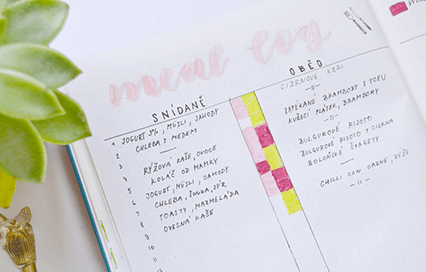 meal log
SNÍDANĚ
1 JOGURT 3%, MÜSLI, JAHODY
2 CHLEBA S MEDEM
3
4 RÝŽOVÁ KAŠE, OVOCE
5 KOLÁČ OD MAMKY
6 JOGURT, MÜSLI, JAHODY
7 CHLEBA, ŠUNKA, SÝR
8 TOASTY, MARMELÁDA
9 OVESNÁ KAŠE
10
11
12
OBĚD
CIZRNOVÉ KARI
-11-
ZAPÉKANÉ BRAMBORY S TOFU
KUŘECÍ PLÁTEK, BRAMBORY
-11-
BULGUROVÉ RIZOTO
BULGUROVÉ RIZOTO + CIZRNA
BOLOŇSKÉ ŠPAGETY
CHILLI CON CARNE, RÝŽE
-11-